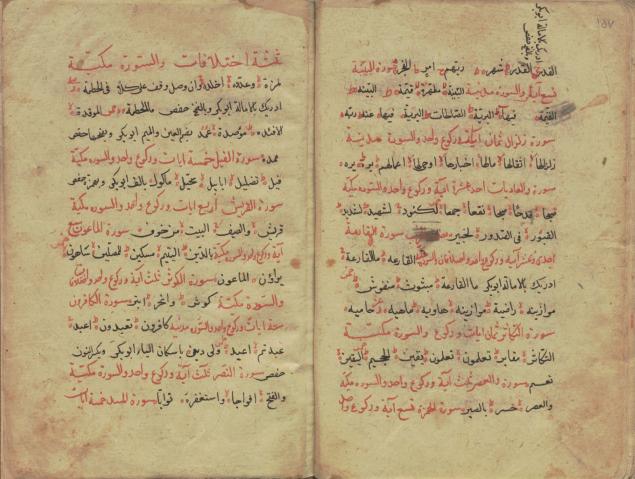 ١٥٧
ادريك بالامالة ابوبكر
القدر القدر شهر ربهم امر الفجر سورة البينة
البينة مطهرة قيمة البينة
القيمة فيها البرية الصالحات البرية فيها
سورة زلزال ثمان وركوع واحد والسورة مدنية
زلزالها اثقالها مالها اخبارها اوحى لها اعمالهم يره يره
سورة والعاديات احد عشرة آية وركوع واحد والسورة مكية
ضبحا قدحا صبحا نقعا جمعا لكنود لشهيد لشديد
القبور فى الصدور لخبير سورة القارعة
آية وركوع واحد القارعه ماالقارعة
ادريك بالامالة ابوبكر ما القارعة مبثوث منفوش
موازينه راضية موازينه هاويه ماهيه حاميه
سورة التكاثر ثمان ايات وركوع واحد والسورة مكتية
التكاثر مقابر تعلمون تعلمون يقين الجحيم اليقين
نعيم سورة والعصر ثلث آية وركوع واحد والسورة مكية
والعصر خسر بالصبر سورة الهمزة تسع آية وركوع واحد
ثلثة اختلافات والسورة مكتية
لمزة وعدده اخلده وصل وقف على كلا فى الحطمة
ادريك بالامالة ابوبكر حفص ماالحطمة الموقدة
الافئدة موصدة عمد بضم العين والميم ابوبكر حفص
ممددة سورة الفيل خمسة ايات وركوع واحد والسورة مكية
فيل تضليل ابابيل سجيل مأكول حفص
سورة القريش اربع ايات وركوع واحد والسورة مكية
قريش والصيف البيت من خوف سورة الماعون سبع
آية وركوع واحد والسورة مكية بالدين اليتيم مسكين للمصلين ساهون
يراؤن الماعون سورة الكوثر ثلث آية وركوع واحد
والسورة مكية كوثر وانحر ابتر سورة الكافرون
ايات وركوع واحد والسورة كافرون تعبدون اعبد
عبدتم اعبد ولى دين باسكان الياء ابوبكر
حفص سورة النصر ثلث آية وركوع واحد والسورة مكتية
والفتح افواجا واستغفره توابا سورة خمسة ايات